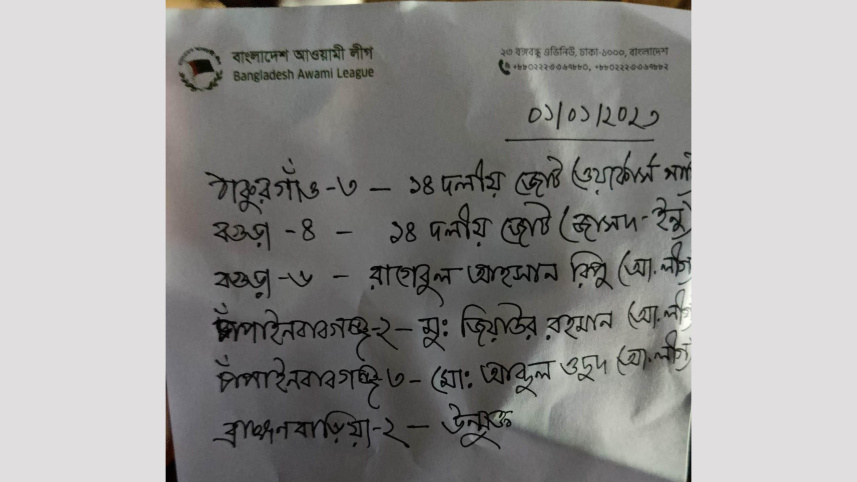 বাংলাদেশ আওয়ামী লীগ
Bangladesh Awami League
২৩ বঙ্গবন্ধু এভিনিউ, ঢাকা-১০০০, বাংলাদেশ
০১/০১/২০২৩
ঠাকুরগাঁও-৩ – ১৪ দলীয় জোট (ওয়ার্কার্স পার্টি
বগুড়া -৪ – ১৪ দলীয় জোট (জাসদ-ইনু)
বগুড়া -৬ – রাগেবুল আহসান রিপু (আ.লীগ
চাঁপাইনবাবগঞ্জ-২ – মু: জিয়াউর রহমান (আ.লীগ
চাঁপাইনবাবগঞ্জ ৩ – মো: আব্দুল ওদুদ (আ.লীগ)
ব্রাহ্মণবাড়িয়া-২ – উন্মুক্ত